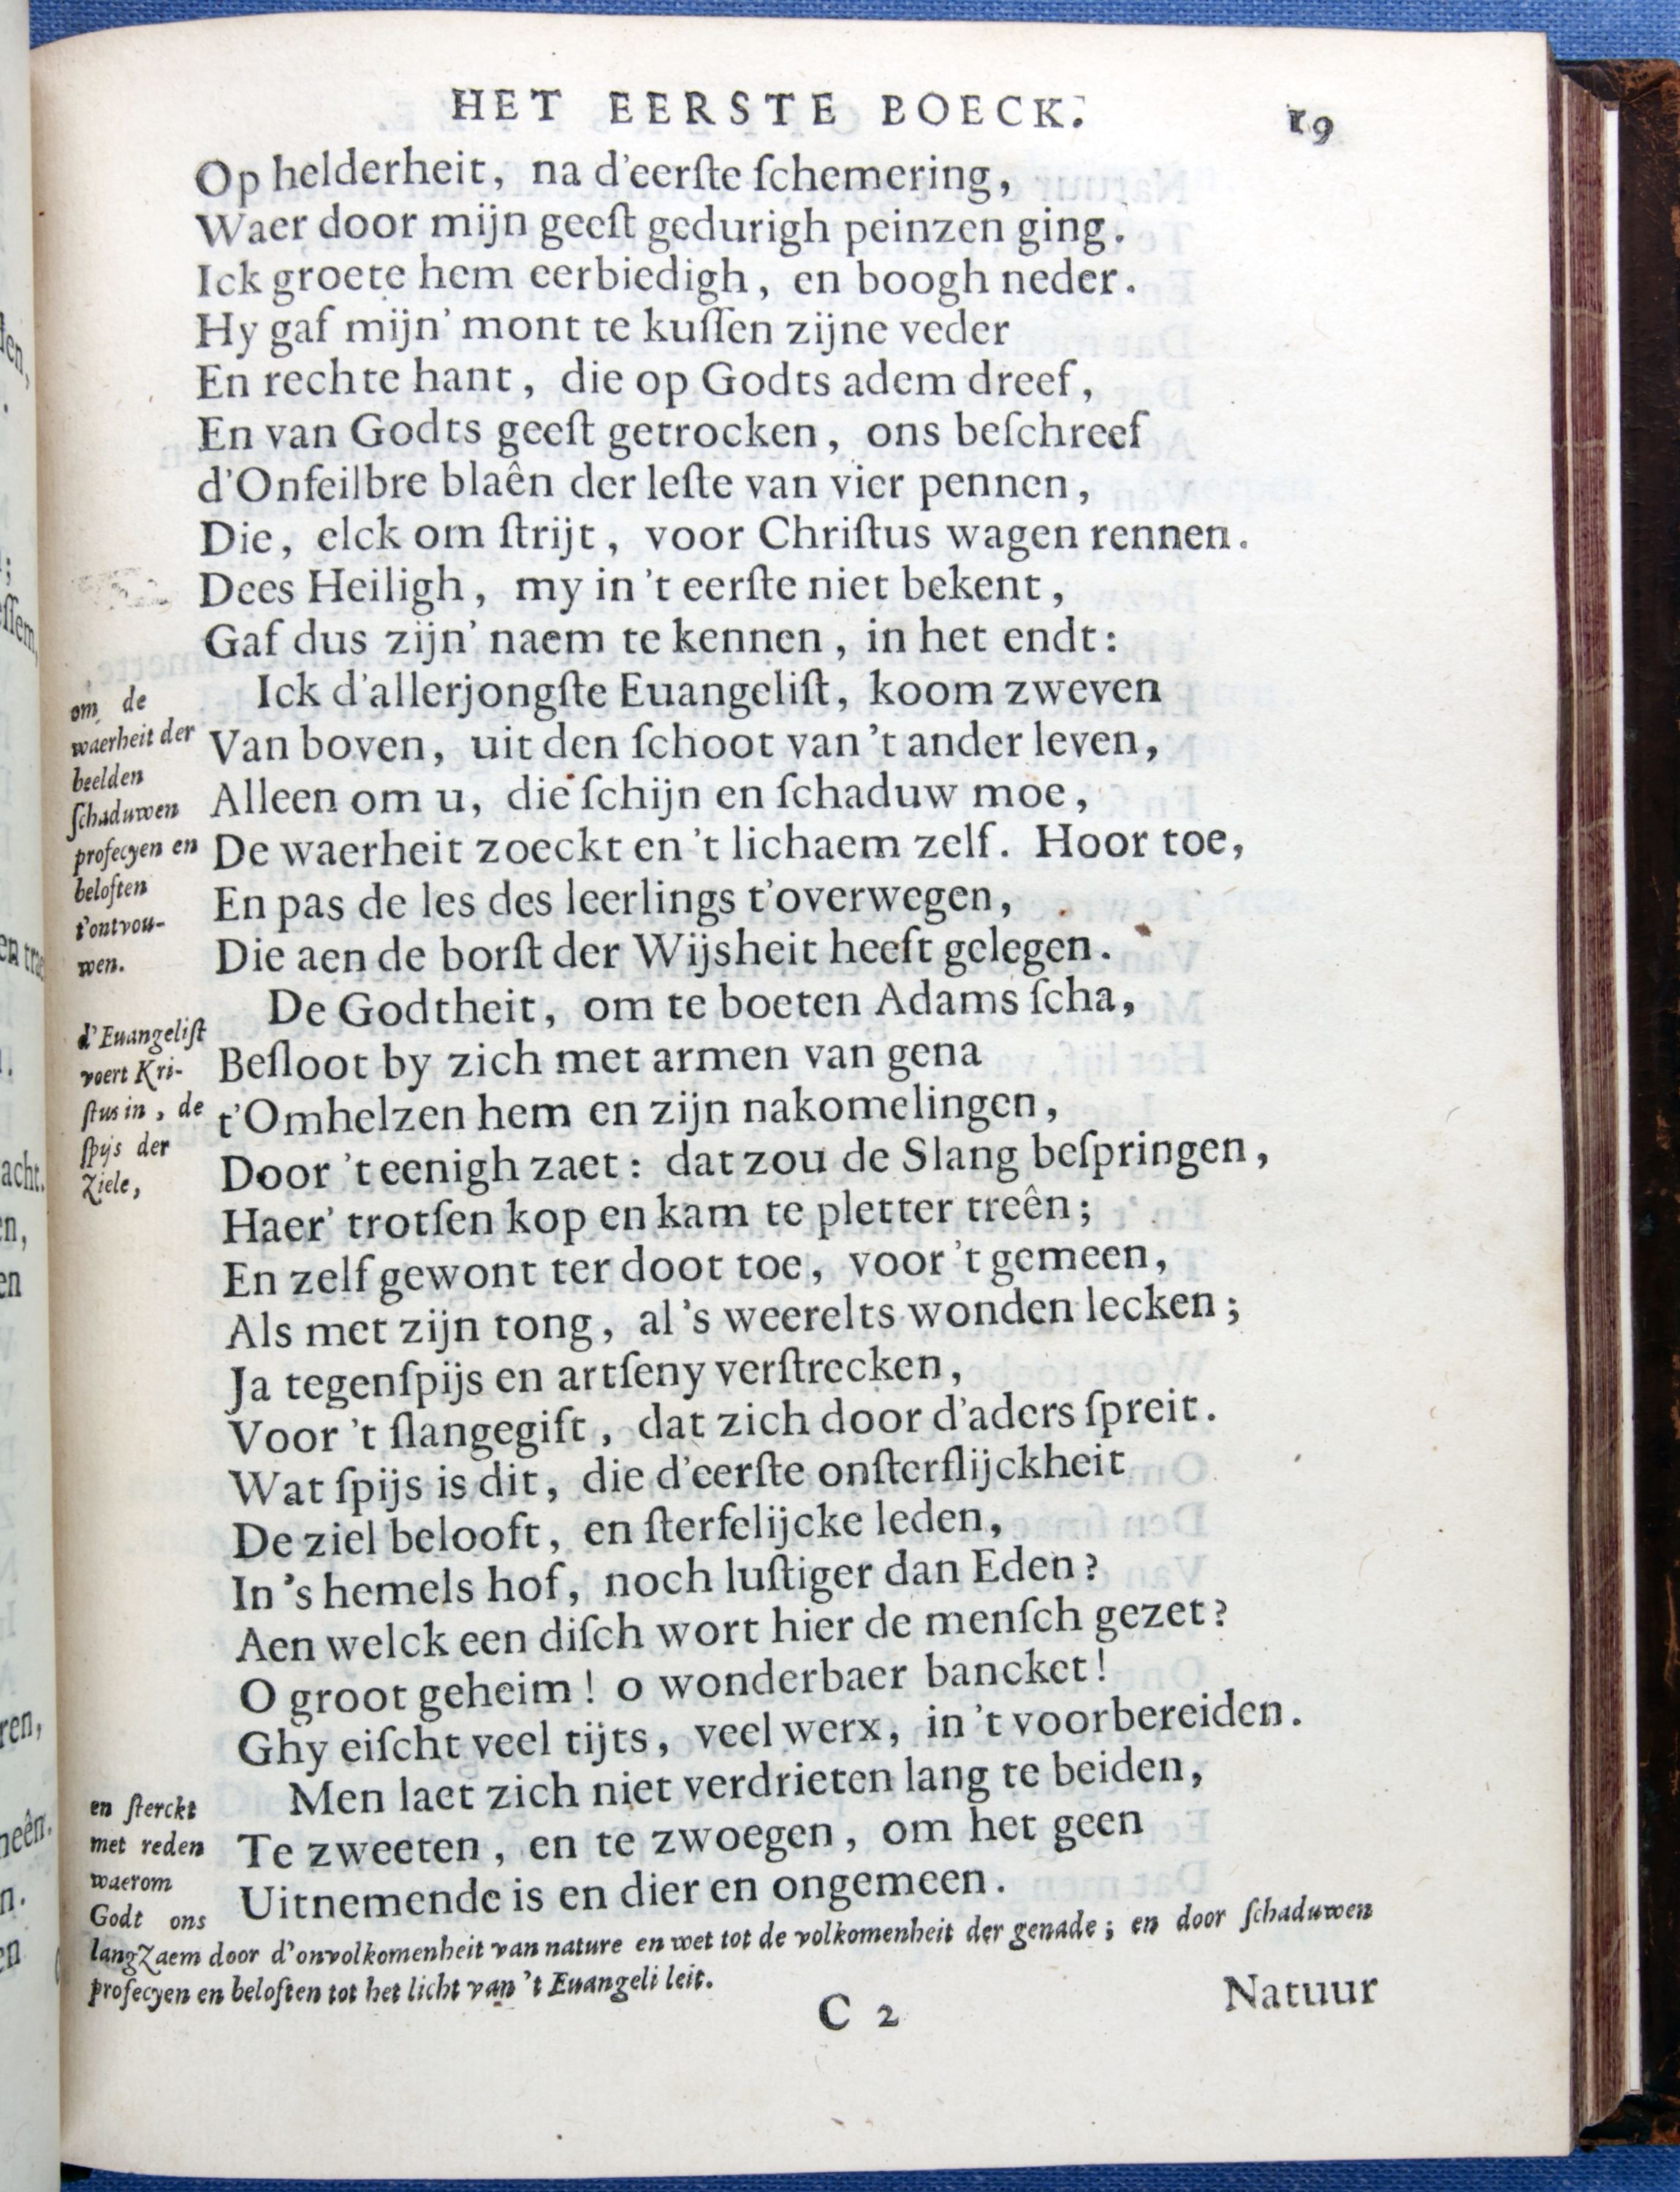 HET EERSTE BOECK. 19
Op helderheit, na d'eerſte ſchemering,
Waer door mijn geeſt gedurigh peinzen ging.
Ick groete hem eerbiedigh, en boogh neder.
Hy gaf mijn' mont te kuſſen zijne veder
En rechte hant, die op Godts adem dreef,
En van Godts geeſt getrocken, ons beſchreef
d'Onfeilbre blaên der leſte van vier pennen,
Die, elck om ſtrijt, voor Chriſtus wagen rennen.
Dees Heiligh, my in 't eerſte niet bekent,
Gaf dus zijn' naem te kennen, in het endt:
Ick d'allerjongſte Euangeliſt, koom zweven
Van boven, uit den ſchoot van 't ander leven,
Alleen om u, die ſchijn en ſchaduw moe,
De waerheit zoeckt en 't lichaem zelf. Hoor toe,
En pas de les des leerlings t'overwegen,
Die aen de borſt der Wijsheit heeft gelegen.
om de
waerheit der
beelden
ſchaduwen
profecyen en
beloften
t'ontvou-
wen.
De Godtheit, om te boeten Adams ſcha,
Beſloot by zich met armen van gena
t'Omhelzen hem en zijn nakomelingen,
Door 't eenigh zaet: dat zou de Slang beſpringen,
Haer' trotſen kop en kam te pletter treên;
En zelf gewont ter doot toe, voor 't gemeen,
Als met zijn tong, al 's weerelts wonden lecken;
Ja tegenſpijs en artſeny verſtrecken,
Voor 't ſlangegift, dat zich door d'aders ſpreit.
Wat ſpijs is dit, die d'eerſte onſterflijckheit
De ziel belooft, en ſterfelijcke leden,
In 's hemels hof, noch luſtiger dan Eden?
Aen welck een diſch wort hier de menſch gezet?
O groot geheim! o wonderbaer bancket!
Ghy eiſcht veel tijts, veel werx, in 't voorbereiden.
d'Euangeliſt
voert Kri-
ſtus in, de
ſpijs der
Ziele,
Men laet zich niet verdrieten lang te beiden,
Te zweeten, en te zwoegen, om het geen
Uitnemende is en dier en ongemeen.
en ſterckt
met reden
waerom
Godt ons
langZaem door d'onvolkomenheit van nature en wet tot de volkomenheit der genade; en door ſchaduwen
profecyen en beloften tot het licht van 't Euangeli leit.
C 2
Natuur